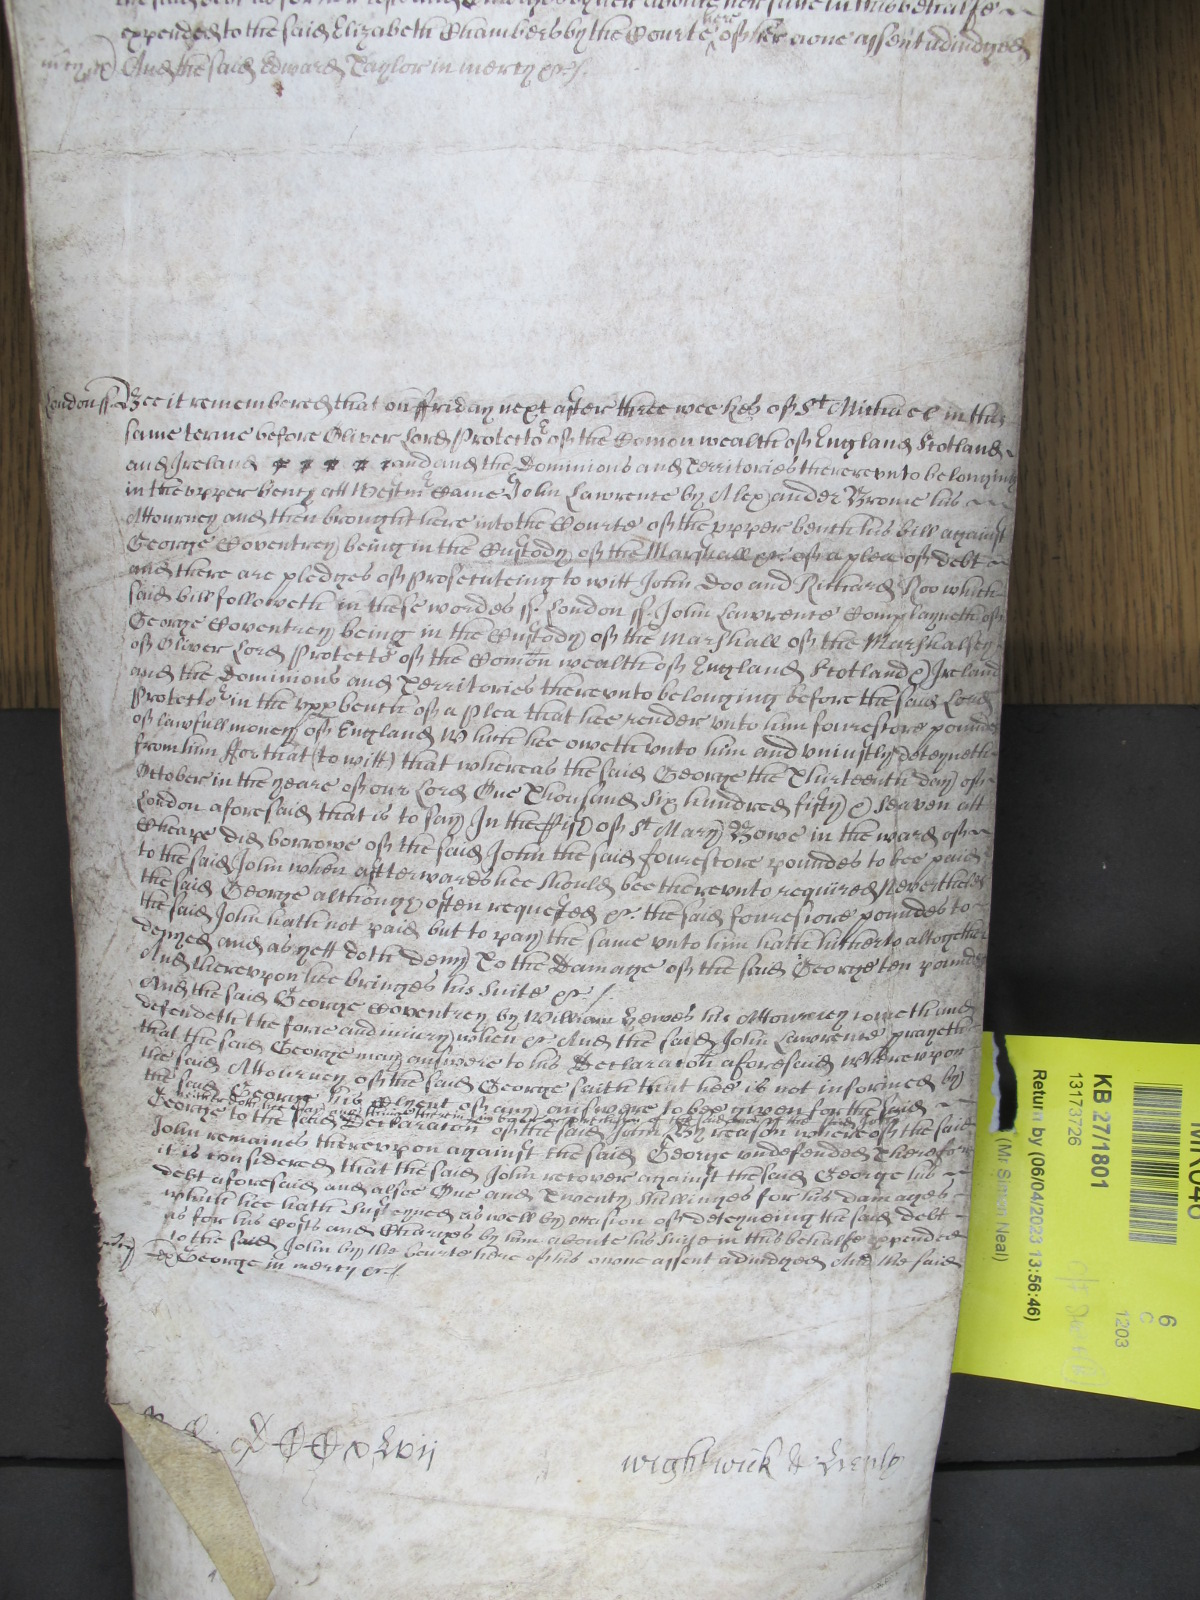 expended to the said Elizabeth Chambers by the Courte here of her owne assent adiudged
And the said Edward Taylor in mercy &c/.
London ss. Bee it remembered that on ffriday next after three weekes of St Michael in this
same terme before Oliver Lord Protector of the Comon wealth of England Scotland
and Ireland and the Dominions and Territories therevnto belonging
in the vpper bench att Westmr Came John Lawrence by Alexander Brome his
Attourney and then brought here into the Courte of the vpper bench his bill against
George Coventrey being in the Custody of the Marshall &c. of a plea of debt
and there are pledges of Prosecuteing to witt John Doo and Richard Roo which
said bill followeth in these wordes ss. London ss. John Lawrence Complayneth of
George Coventrey being in the Custody of the Marshall of the Marshalsey
of Oliver Lord Protector of the Comon wealth of England Scotland & Ireland
and the Dominions and Territories therevnto belonging before the said Lord
Protector in the vpp bench of a Plea that hee render vnto him fourescore poundes
of lawfull money of England Which hee oweth vnto him and vniustly deteyneth
from him ffor that (to witt) that whereas the said George the Thirteenth day of
October in the yeare of our Lord One Thousand Six hundred fifty & seaven att
London aforesaid that is to say In the P̱ish of St Mary Bowe in the ward of
Cheape did borrowe of the said John the said fourescore poundes to bee paid
to the said John when afterwards hee should bee therevnto required Neverthelesse
the said George although often requested &c. the said fourescore poundes to
the said John hath not paid but to pay the same vnto him hath hitherto altogether
denyed and as yett doth deny To the Damage of the said George ten poundes
And therevpon hee bringes his suite &c/.
And the said George Coventrey by William Hewes his Attourney cometh and
defendeth the force and iniury when &c And the said John Lawrence prayeth
that the said George may answere to his Declaracon aforesaid Wherevpon
the said Attourney of the said George saith that hee is not informed by
the said George his Clyent of any answere to bee given for the said
George to the said Declaracon of the said John By reason whereof the said
John remaines therevpon against the said George vndefended Therefore
it is considered that the said John recover against the said George his
debt aforesaid and alsoe One and Twenty shillinges for his damages
which hee hath susteyned as well by occasion of deteyneing the said debt
as for his Costs and Charges by him aboute his suite in this behalfe expended
to the said John by the Courte here of his owne assent adiudged And the said
George in mercy &c/.
Wightwick &
KB 27/1801
13173726
Return by (06/04/2023 13:56:46)
(Mr Simon Neal)
6
C
1203